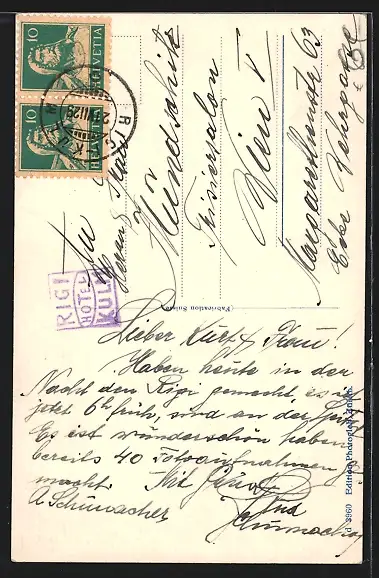 10 HELVETIA
10 HELVETIA
RIGI KULM
An
Herrn & Frau
Mündschitz
Frisiersalon
Wien V
Margarethenstr 63
Ecke
RIGI
HOTEL
KULM
(Fabrication Suisse)
Lieber Kurt & Frau!
Haben heute in der
Nacht den Rigi gemacht, es
jetzt 6h früh, sind an der
Es ist wunderschön haben
bereits 40 Fotoaufnahmen
macht. Mit Gruss
A Schumacher und
Schumacher
3960 Edition Photoglob Zürich